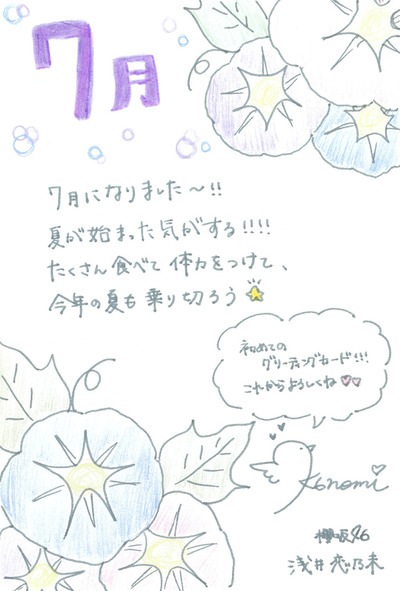 7月
7月になりました〜!!
夏が始まった気がする!!!!
たくさん食べて体力をつけて、
今年の夏も乗り切ろう
初めての
グリーティングカード!!!
これからよろしくね♡♡
Konomi
櫻坂46
浅井恋乃未